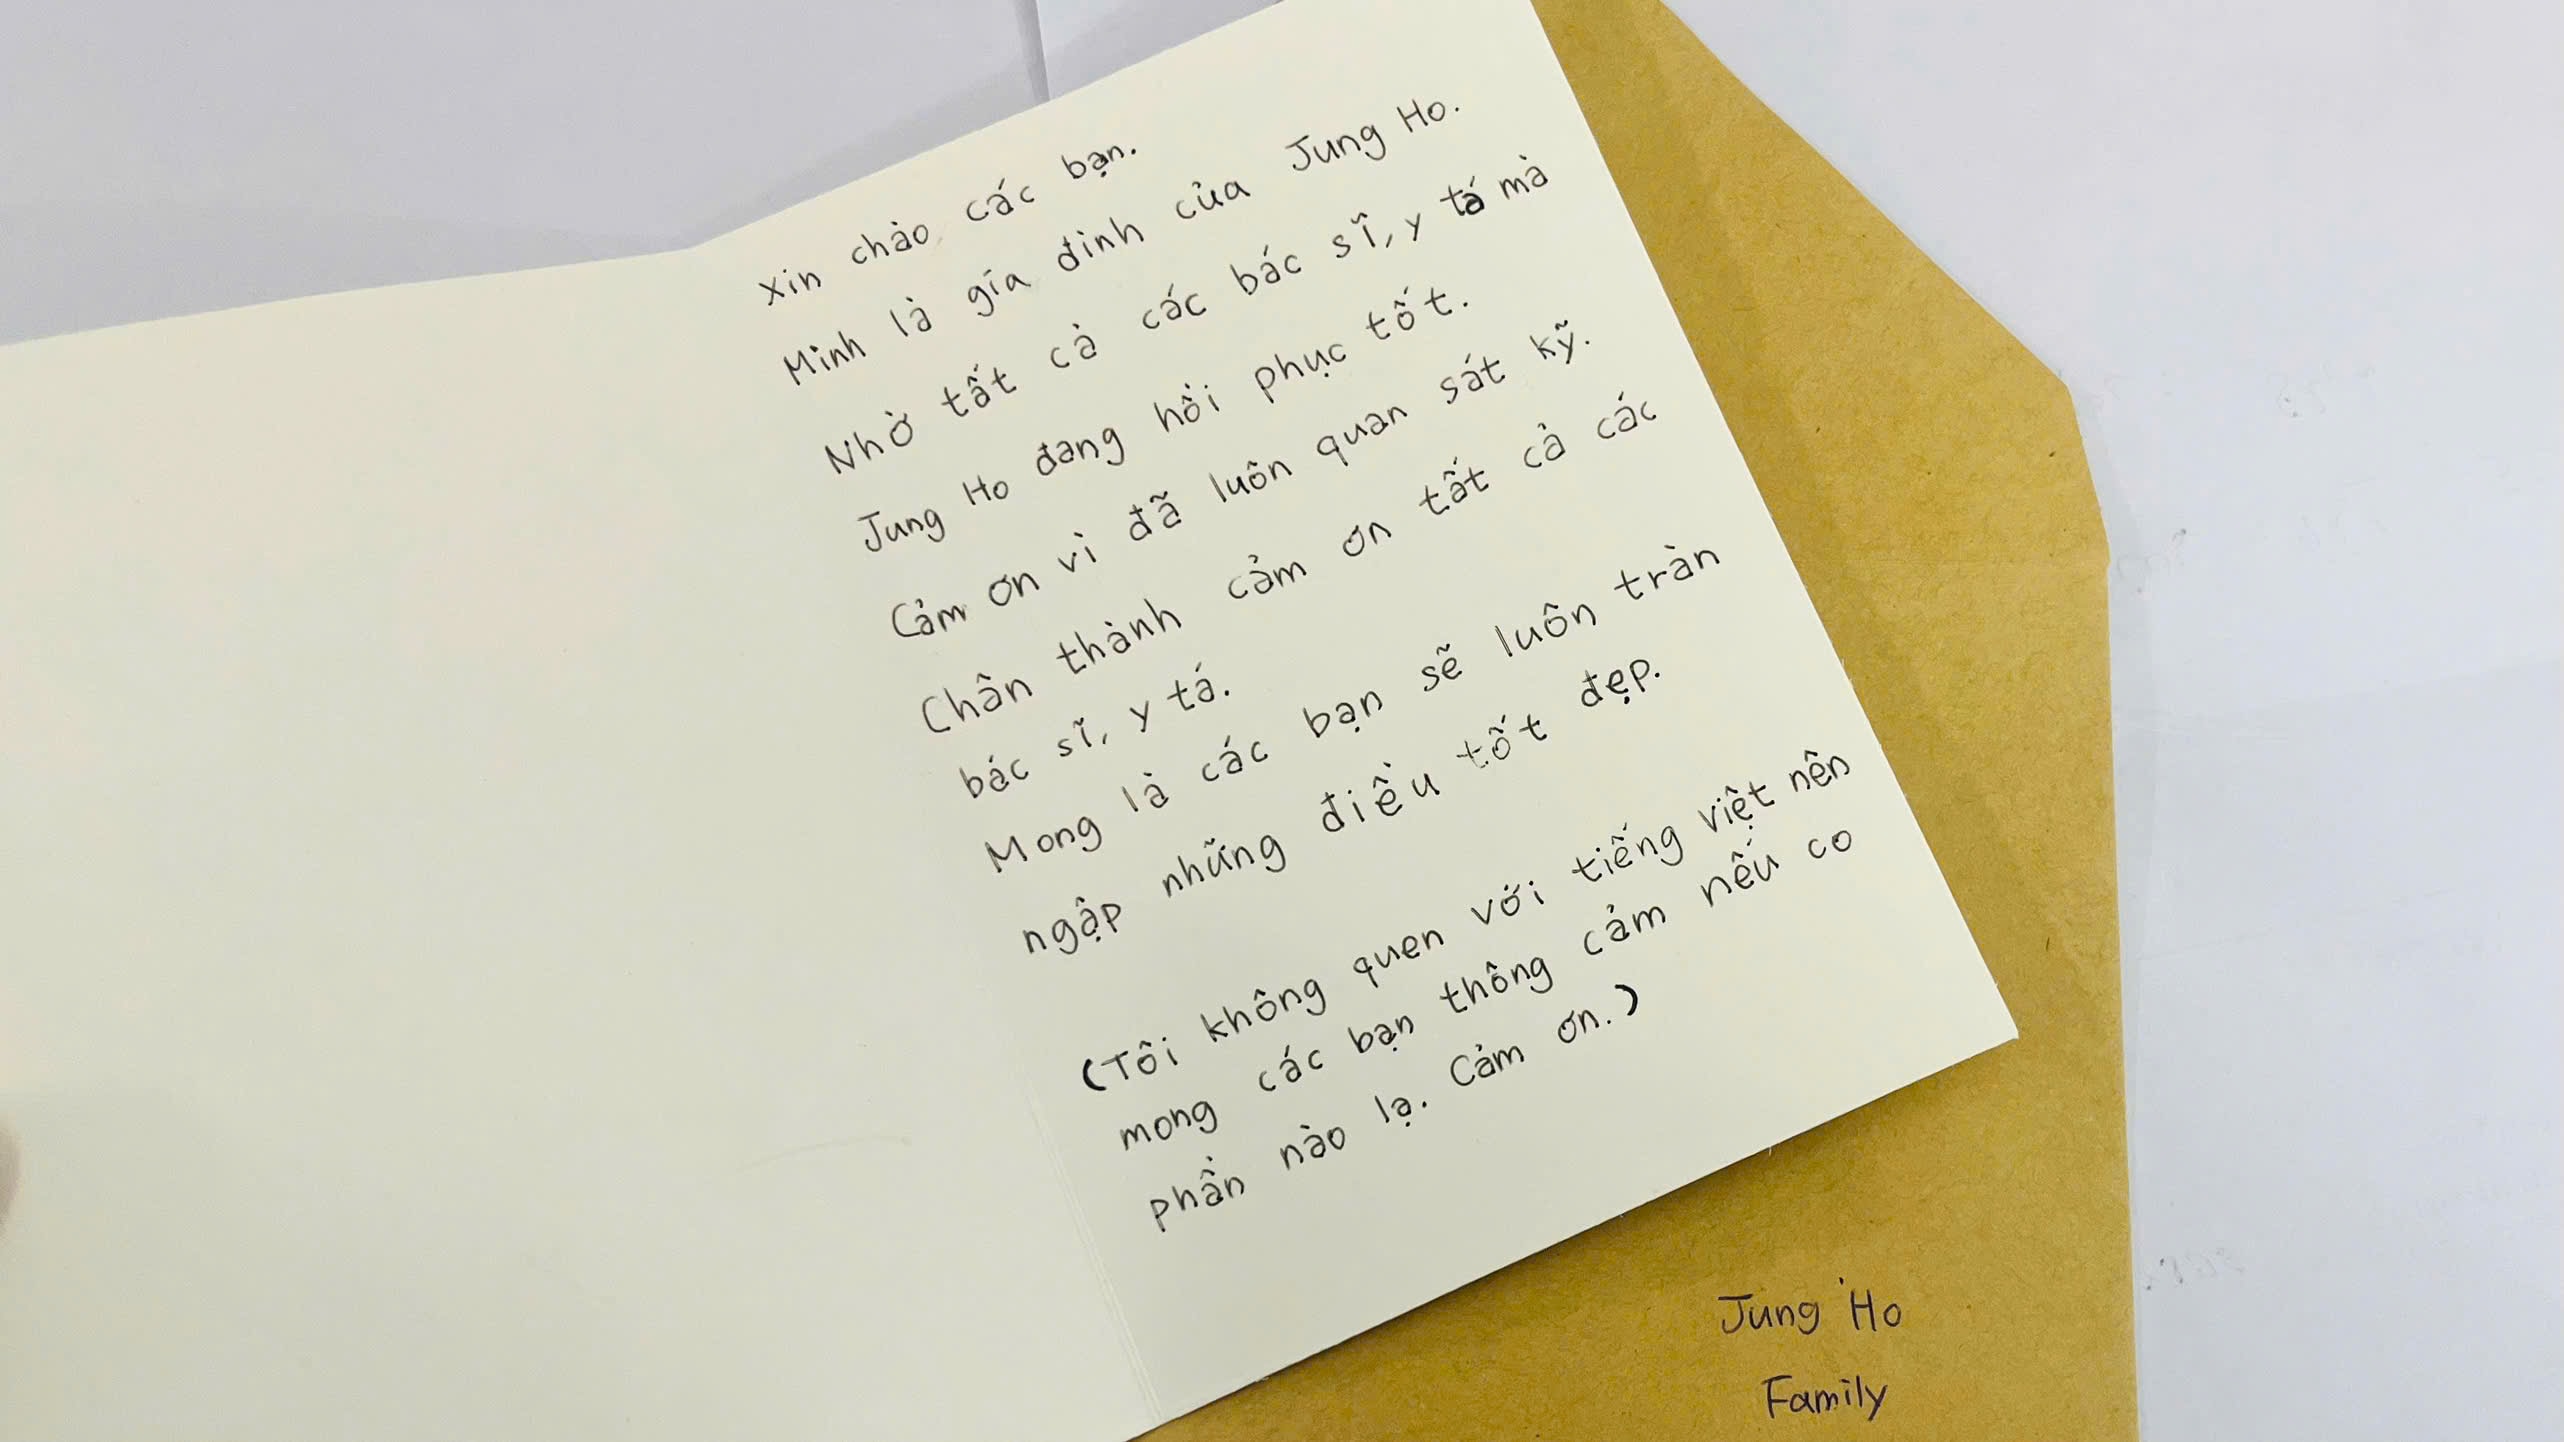 Xin chào các bạn.
Mình là gía đình của Jung Ho.
Nhờ tất cả các bác sĩ, y tá mà
Jung Ho đang hồi phục tốt.
Cảm ơn vì đã luôn quan sát kỹ.
Chân thành cảm ơn tất cả các
bác sĩ, y tá.
Mong là các bạn sẽ luôn tràn
ngập những điều tốt đẹp.
(Tôi không quen với tiếng việt nên
mong các bạn thông cảm nếú co
phần nào lạ. Cảm ơn.)
Jung Ho
Family